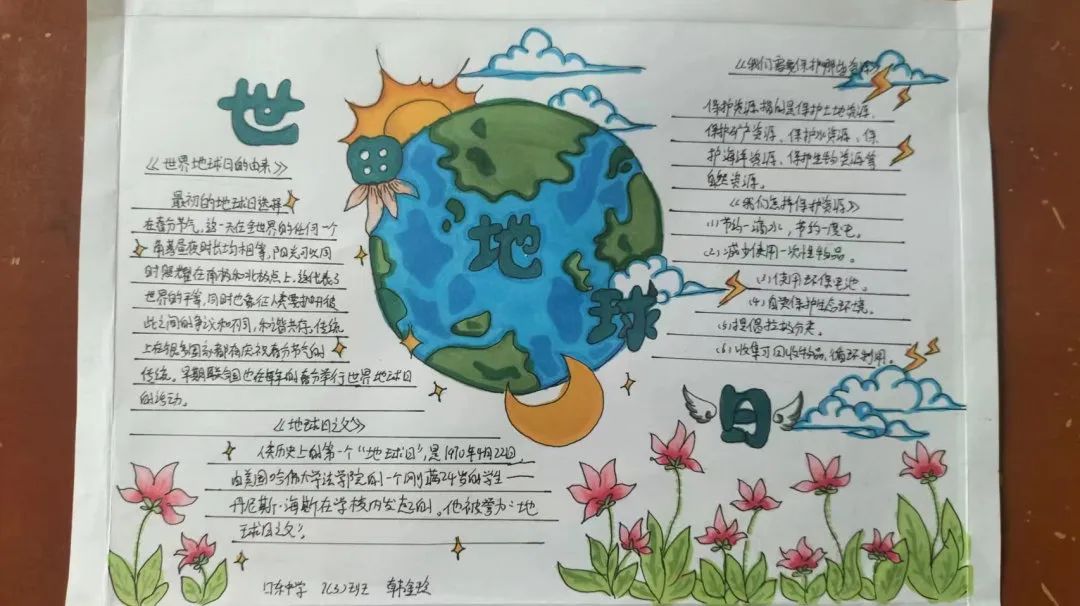 世
界
地
球
日
《世界地球日的由来》
最初的地球日选择
在春分节气,这一天在全世界的任何一个
角落昼夜时长均相等,阳光可以同
时照耀在南极和北极点上,这代表了
世界的平等,同时也象征人类要抛开彼
此之间的争议和不同,和谐共存,传统
上在很多国家都有庆祝春分节气的
传统。早期联合国也在每年的春分举行世界地球日
的活动。
《地球日之父》
人类历史上的第一个“地球日”,是1970年4月22日,
由美国哈佛大学法学院的一个刚满24岁的学生——
丹尼斯·海斯在学校内发起的。他被誉为:地
球日之父。
《我们需要保护哪些资源》
保护资源指的是保护土地资源、
保护矿产资源、保护水资源、保
护海洋资源、保护生物资源等
自然资源。
《我们怎样保护资源》
(1)节约一滴水,节约一度电。
(2)减少使用一次性物品。
(3)使用环保电池。
(4)自觉保护生态环境。
(5)提倡垃圾分类。
(6)收集可回收物品,循环利用。
中学 7(3)班